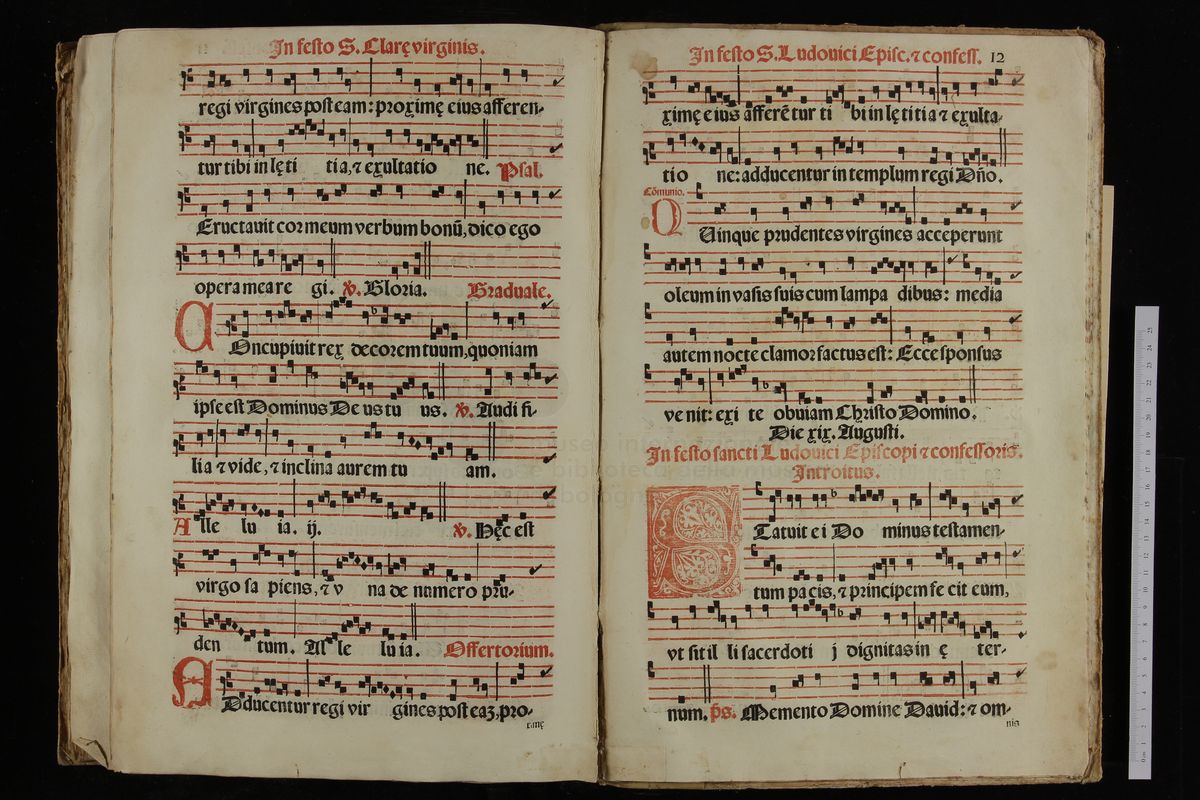 In festo S. Clarę virginis.
regi virgines post eam: proximę eius afferen-
tur tibi in lę ti tia, ⁊ exultatio ne. Psal.
Eructauit cor meum verbum bonū, dico ego
opera mea re gi. ℣. Gloria. Graduale.
COncupiuit rex decorem tuum, quoniam
ipse est Dominus De us tu us. ℣. Audi fi-
lia ⁊ vide, ⁊ inclina aurem tu am.
Alle lu ia. ij. ℣. Hęc est
virgo sa piens, ⁊ v na de numero pru-
den tum. Al le lu ia. Offertorium.
ADducentur regi vir gines post eaʒ, pro-
In festo S. Ludouici Episc. ⁊ confess. 12
ximę e ius afferē tur ti bi in lę ti ti a ⁊ exulta-
tio ne: adducentur in templum regi Dño.
Cōmunio.
QUinque prudentes virgines acceperunt
oleum in vasis suis cum lampa dibus: media
autem nocte clamor factus est: Ecce sponsus
ve nit: exi te obuiam Christo Domino.
Die xix. Augusti.
In festo sancti Ludouici Episcopi ⁊ confessoris.
Introitus.
STatuit e i Do minus testamen-
tum pa cis, ⁊ principem fe cit eum,
vt sit il li sacerdoti j dignitas in ę ter-
num. ps. Memento Domine Dauid: ⁊ om-
nis